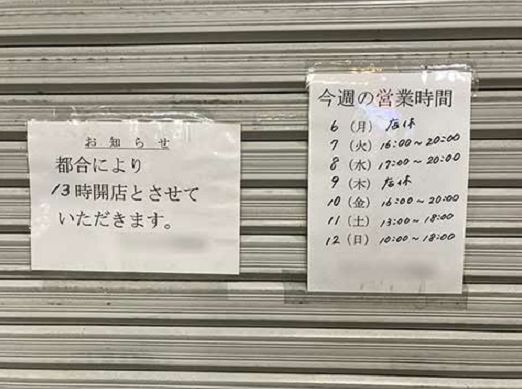 お知らせ
都合により
13時開店とさせて
いただきます。
今週の営業時間
6（月）店休
7（火）16:00～20:00
8（水）17:00～20:00
9（木）店休
10（金）16:00～20:00
11（土）13:00～18:00
12（日）10:00～18:00